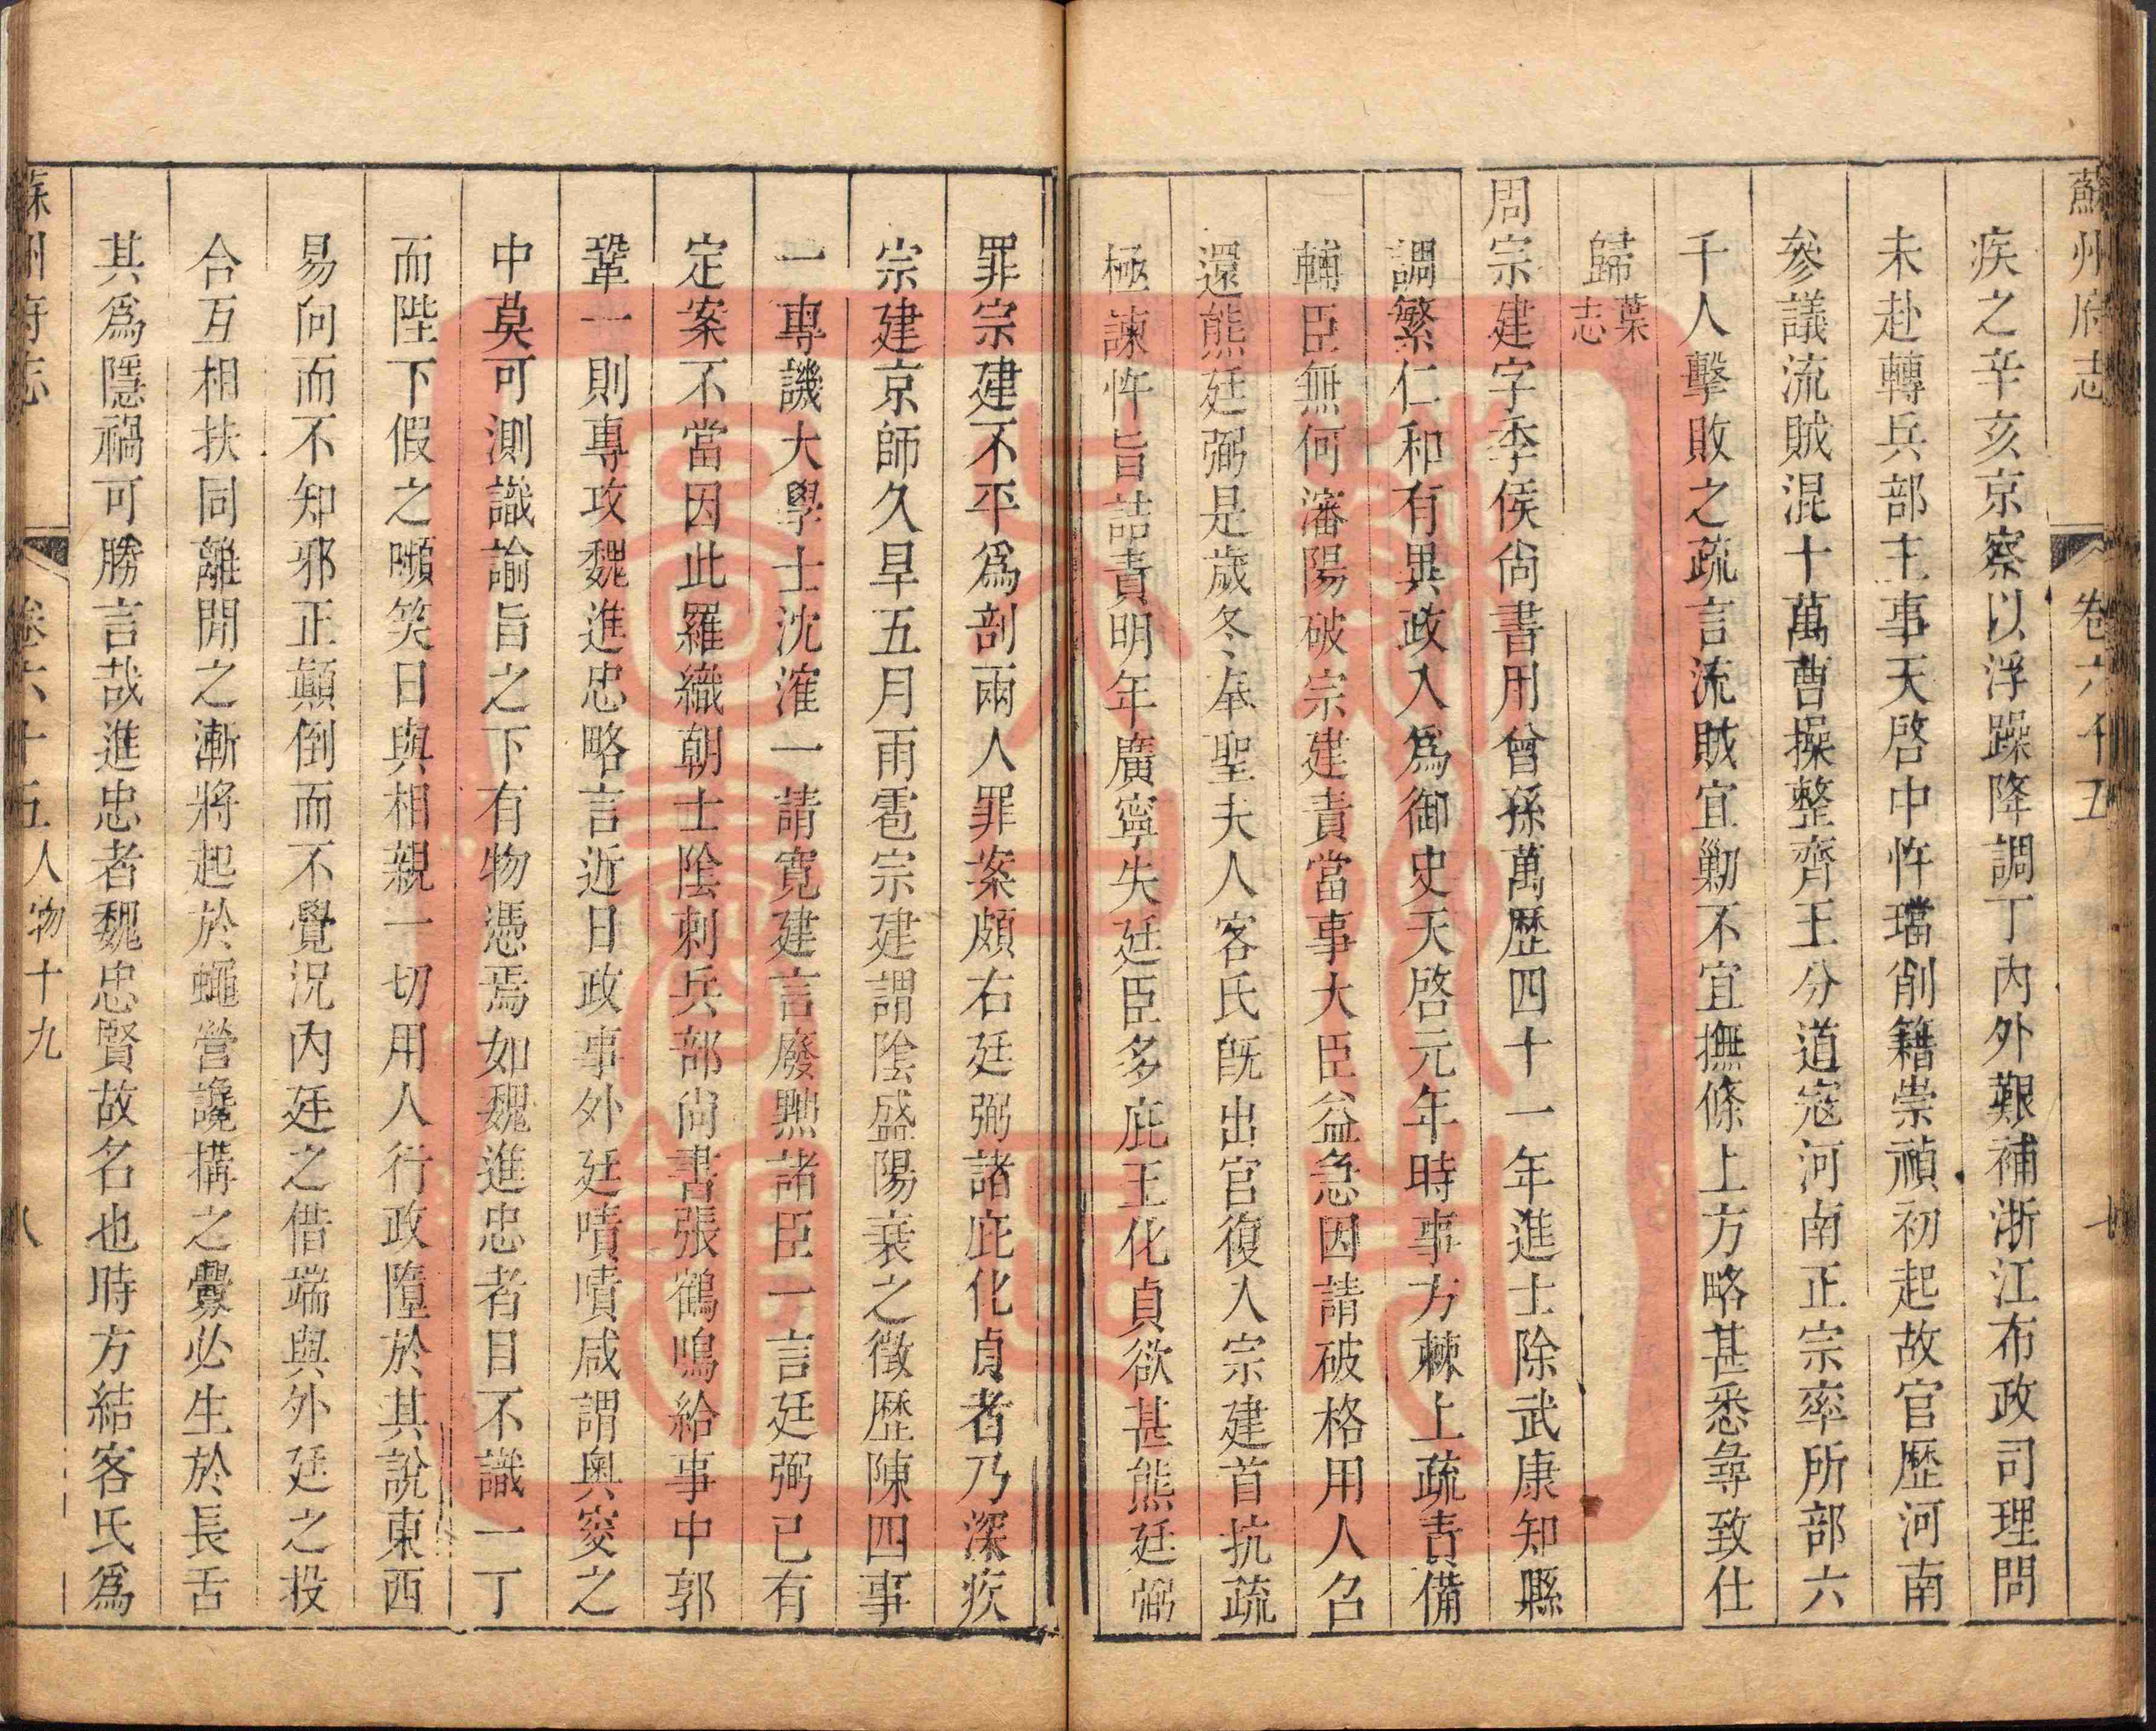 蘇州府志 卷六十五 七
疾之辛亥京察以浮躁降調丁內外艱補浙江布政司理問
未赴轉兵部主事天啓中忤璫削籍崇禎初起故官歷河南
參議流賊混十萬曹操整齊王分道寇河南正宗率所部六
千人擊敗之疏言流賊宜勦不宜撫條上方略甚悉尋致仕
歸葉志
周宗建字季侯尙書用曾孫萬歷四十一年進士除武康知縣
調繁仁和有異政入爲御史天啓元年時事方棘上疏責備
輔臣無何瀋陽破宗建責當事大臣益急因請破格用人召
還熊廷弼是歲冬奉聖夫人客氏旣出宮復入宗建首抗疏
極諫忤旨詰責明年廣寧失廷臣多庇王化貞欲甚熊廷弼
罪宗建不平爲剖兩人罪案頗右廷弼諸庇化貞者乃深疾
宗建京師久旱五月雨雹宗建謂陰盛陽衰之徵歷陳四事
一專譏大學士沈㴶一請寬建言廢黜諸臣一言廷弼已有
定案不當因此羅織朝士陰刺兵部尙書張鶴鳴給事中郭
鞏一則專攻魏進忠略言近日政事外廷嘖嘖咸謂奧窔之
中莫可測識諭旨之下有物憑焉如魏進忠者目不識一丁
而陛下假之嚬笑日與相親一切用人行政墮於其說東西
易向而不知邪正顚倒而不覺況內廷之借端與外廷之投
合互相扶同離間之漸將起於蠅營讒搆之釁必生於長舌
其爲隱禍可勝言哉進忠者魏忠賢故名也時方結客氏爲
蘇州府志 卷六十五人物十九 八